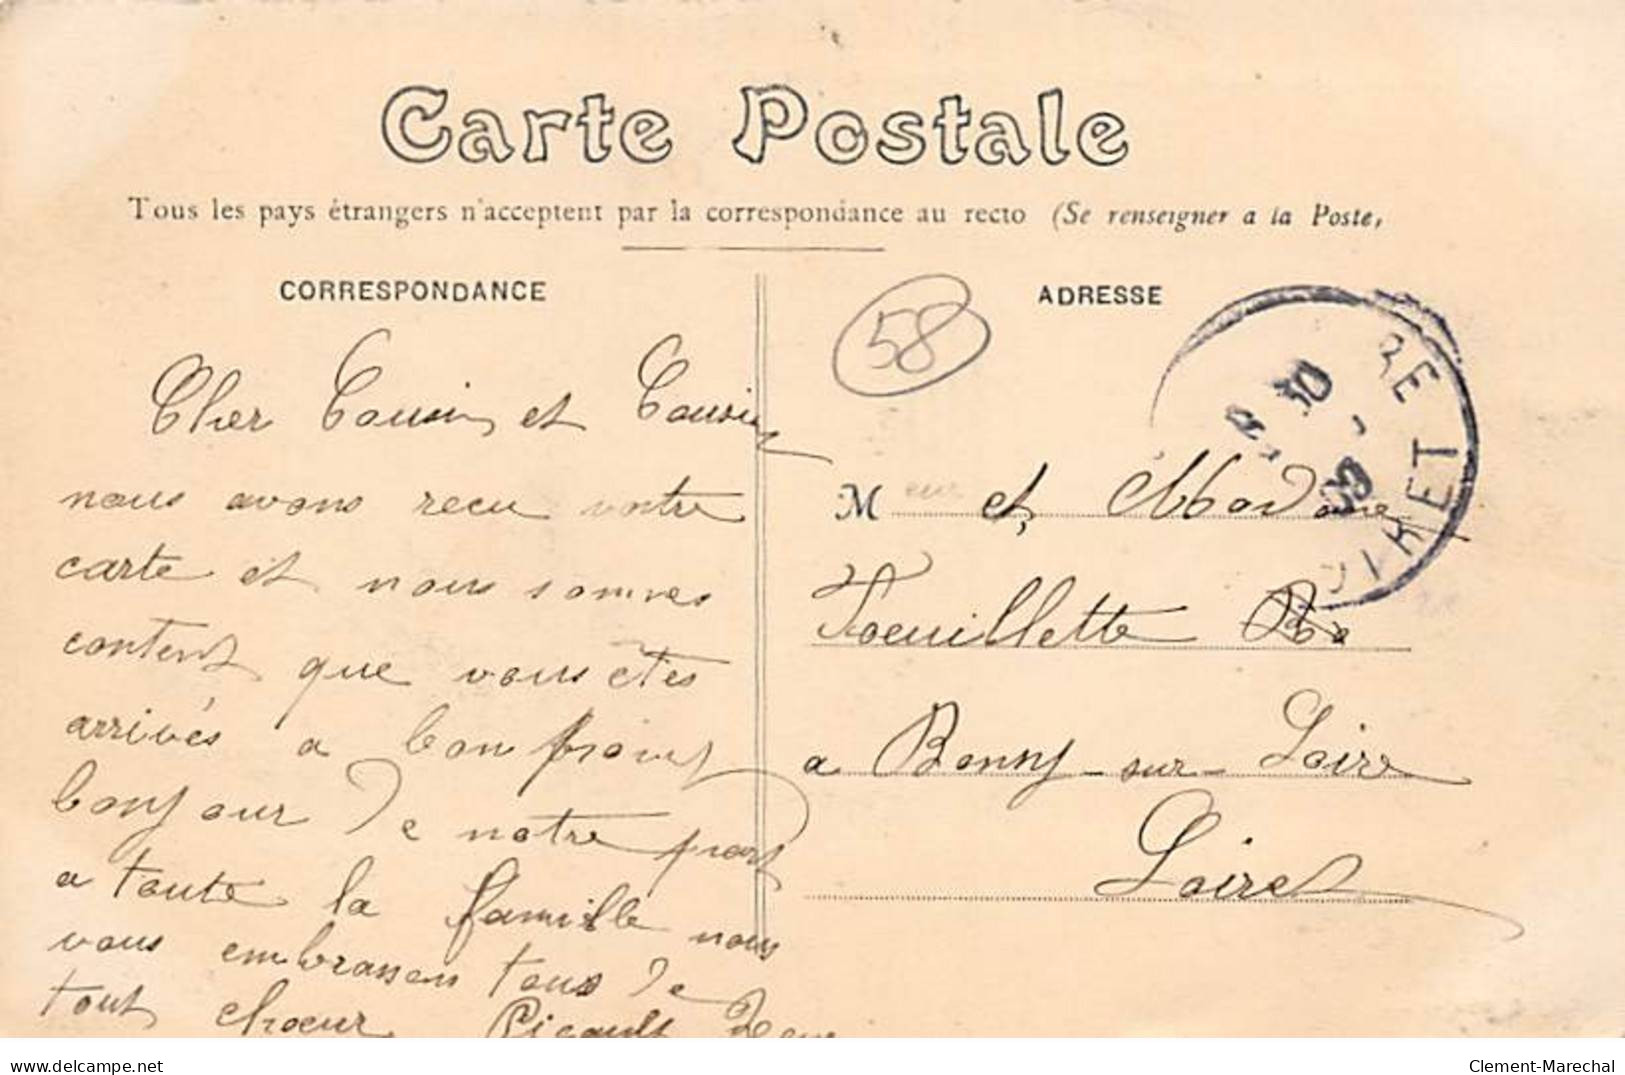 Carte Postale
Tous les pays étrangers n'acceptent par la correspondance au recto (Se renseigner a la Poste,
CORRESPONDANCE
Cher Cousin et Cousine
nous avons recu vostre
carte et nous sommes
content que vous êtes
arrivés a bon port
bonjour de notre part
a toute la famille nous
vous embrassons tous de
tout choeur Picault
58
ADRESSE
RE
30
09
LOIRET
M eur et Madame
Feuillette
a Bonny-sur-Loire
Loiret
delcampe.net
Clement-Marechal